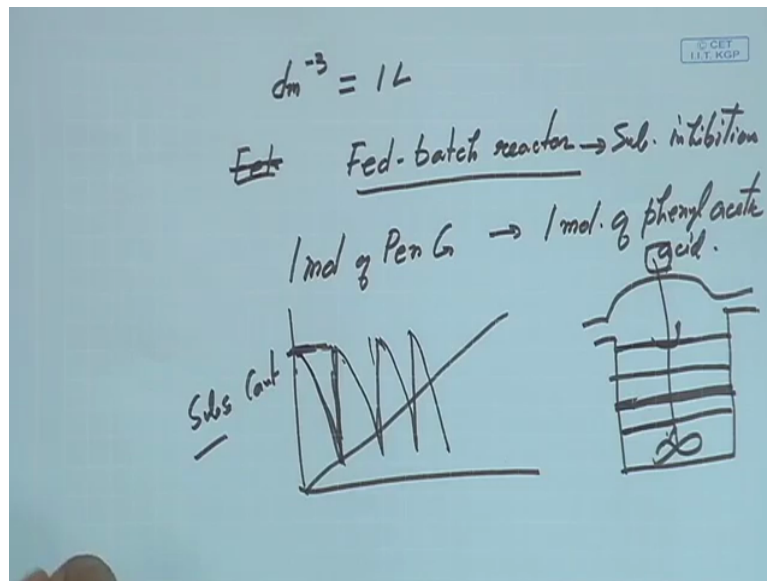 © CET
I.I.T. KGP
dm⁻³ = 1L
Fed-batch reactor → Sub. inhibition
1 mol of Pen G → 1 mol. of phenyl acetic
acid.
Subs Cont